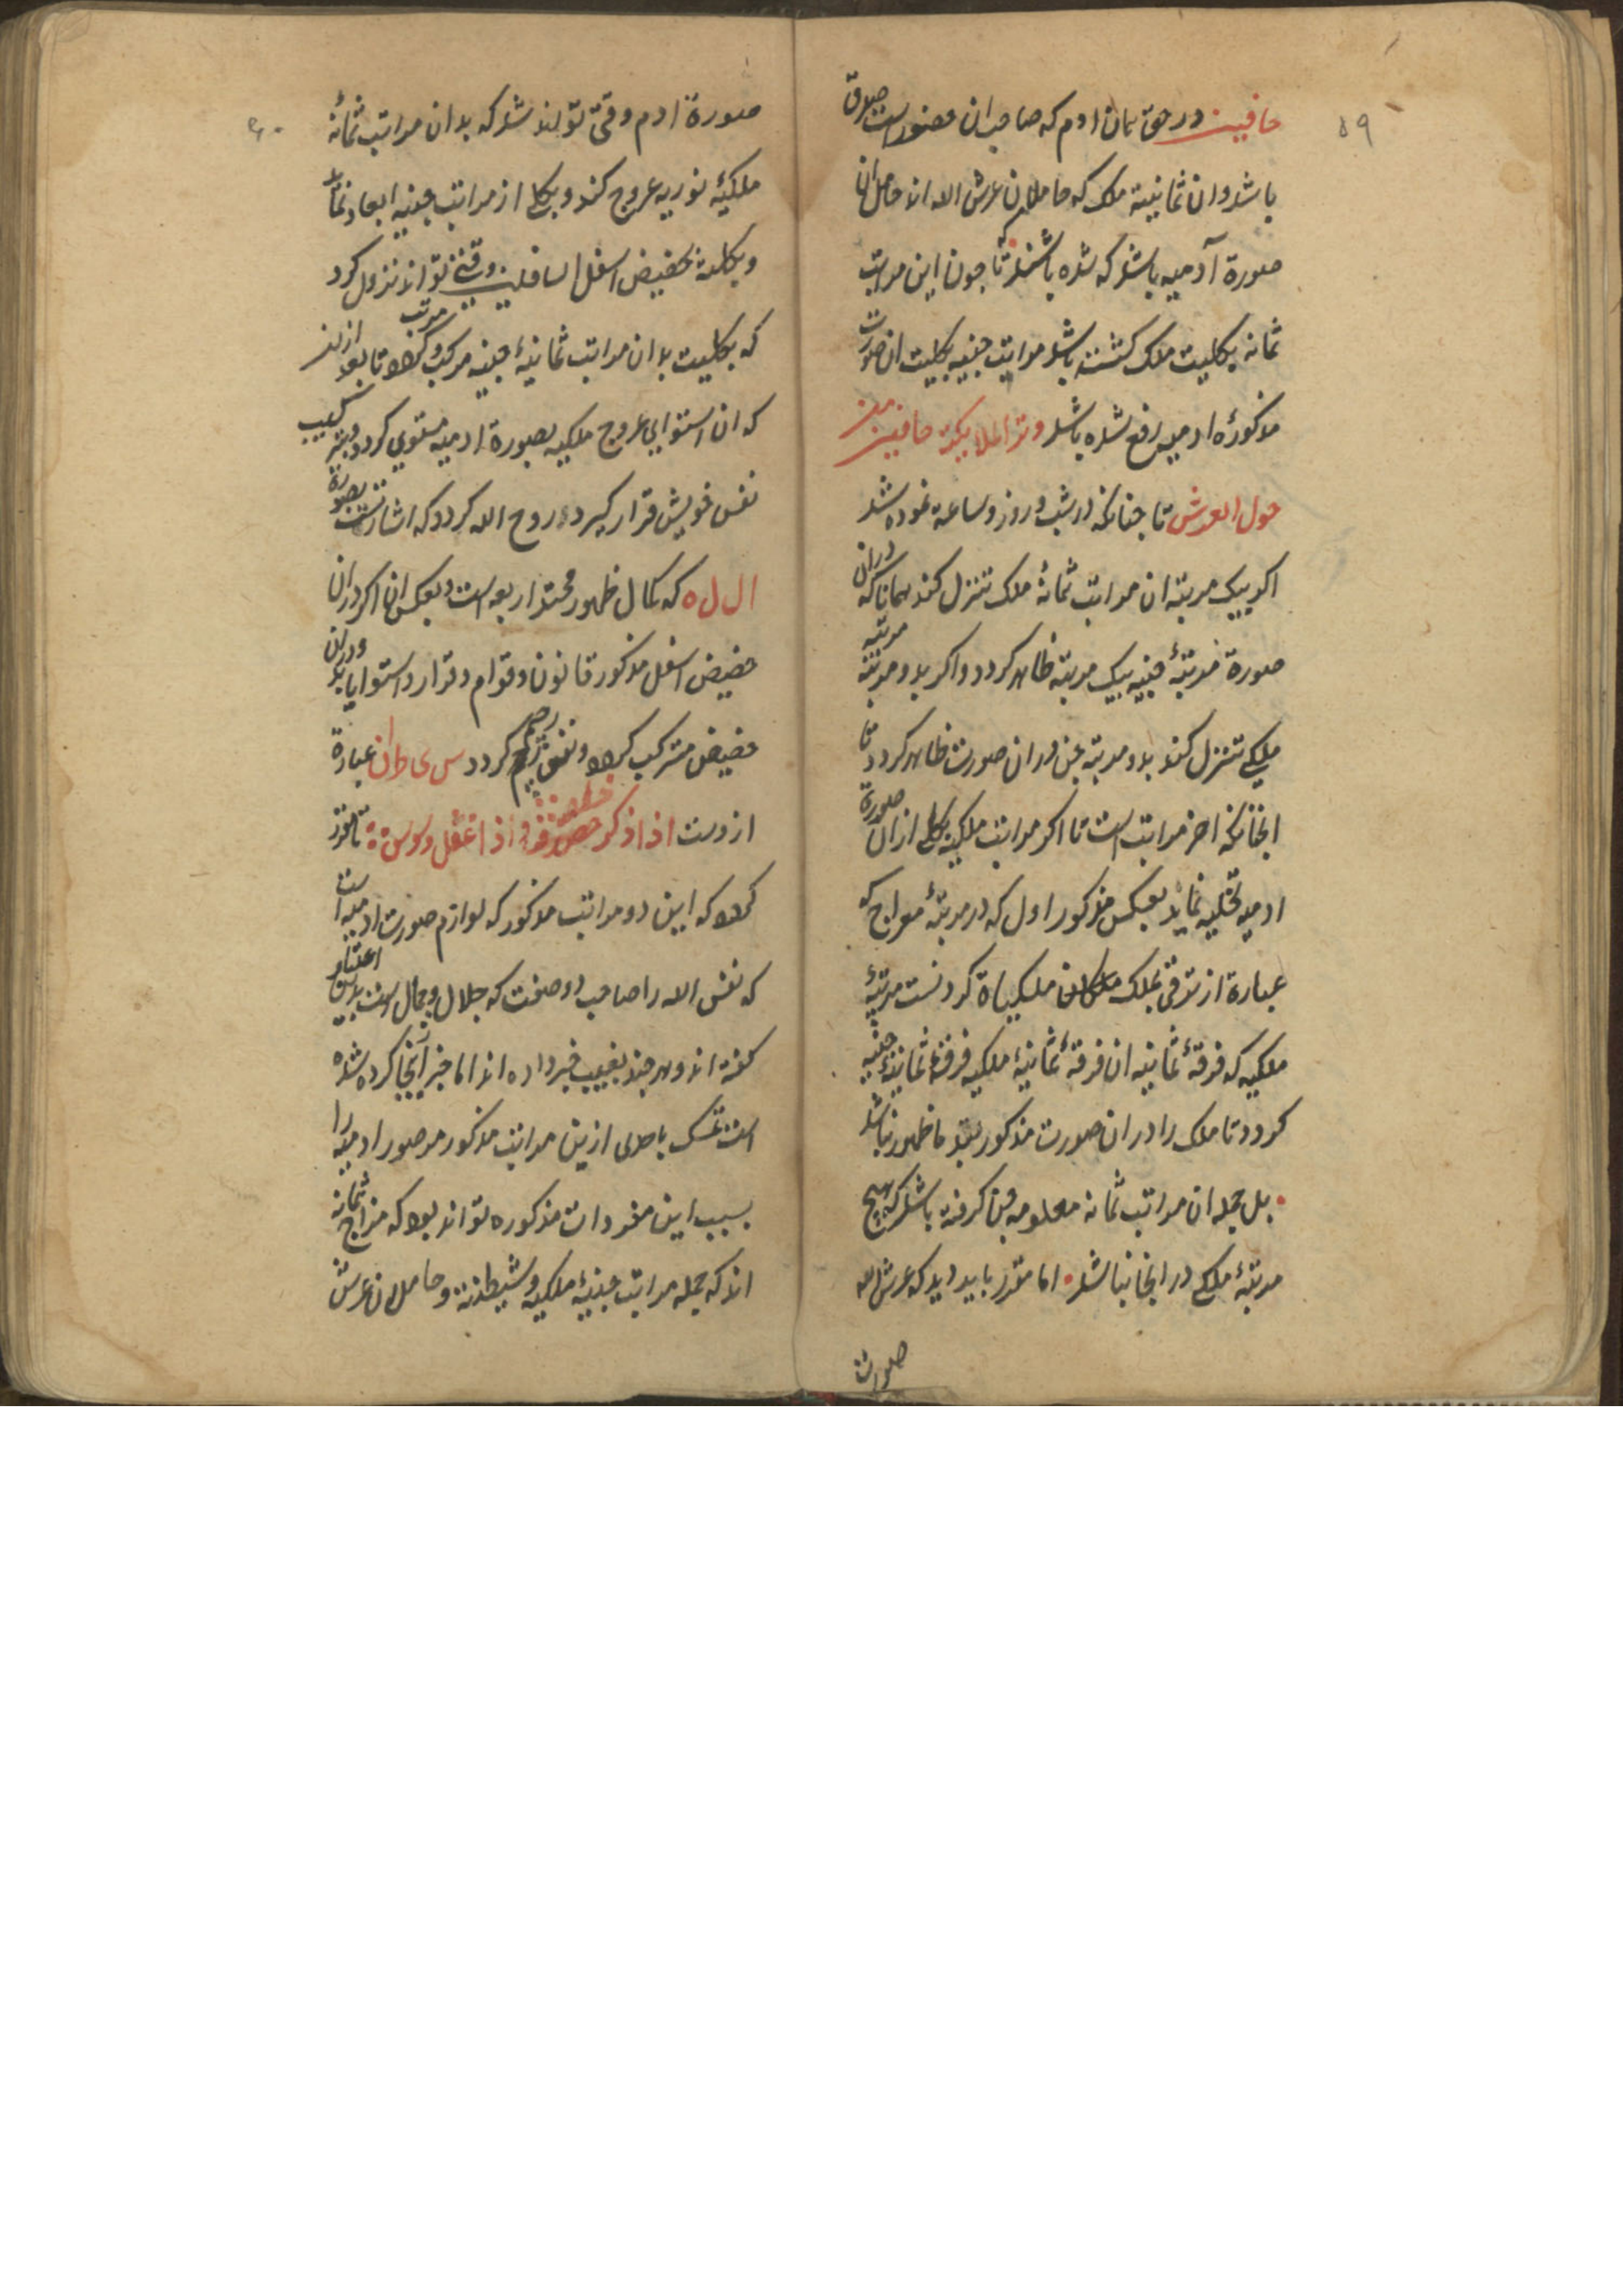 ۵۹
حافین در حق بیان ادم که صاحب ان حضور است صادق
باشد وان ثمانیة ملک که حاملان عرش الله اند حامل ان
صورة آدمیه باشد که شده باشند تا چون این مراتب
ثمانه بکلیت ملک کشته باشد مراتب جنیه بکلیت ان صورت
مذکورهٔ ادمیه رفع شده باشد وتر الملایکة حافین من
حول العرش تا چنانکه در شب و روز و ساعة نموده شد
اکر بیک مرتبه ان مراتب ثمانهٔ ملک تنزل کند همانا که دران
صورة مرتبهٔ جنیه بیک مرتبه ظاهر کردد واکر بدو مرتبه مرتبه
ملکی تنزل کند بدو مرتبه جن دران صورت ظاهر کردد تا
انجانکه اخر مراتب است تا اکر مراتب ملکیه بکلی ازان صورة
ادمیه تخلیه نماید بعکس مذکور اول که در مرتبهٔ معراج که
عبارة از ترقی بملک ملکیاة کردنست مرتبهٔ
ملکیه که فرقهٔ ثمانیه ان فرقهٔ ثمانیهٔ ملکیه فرقهٔ ثمانیهٔ جنیه
کردد تا ملک را دران صورت مذکور ظهور نباشد
بل جمله ان مراتب ثمانه معلومه جن کرفته باشد که هیچ
مرتبهٔ ملکی در انجا نباشد اما مقرر باید دید که عرش الله
صورت
۶۰
صورة ادم وقتی تواند شد که بدان مراتب ثمانهٔ
ملکیهٔ نوریه عروج کند و بکلی از مراتب جنیه ابعاد نماید
و بکلیة بحضیض اسفل السافلین وقتی تواند نزول کرد
که بکلیت بدان مراتب ثمانیهٔ جنیه مرکب و مرتب کردد تا بعد ازین
که ان استوایی عروج ملکیه بصورة ادمیه مستوی کردد وبترکیب
نفس خویش قرار کیرد روح الله کردد که اشارتست بصورة
ال ل ه که کمال ظهور محتد اربعه است و بعکس ان اکر دران
حضیض اسفل مذکور قانون وقوام وقرار واستوا یابد ودران
حضیض مترکب کردد ونفس رجیم کردد س ی ط ا ن عبارة
ازوست اذا ذکر خنس واذا غفل وسوس تا مقرر
کردد که این دو مراتب مذکور که لوازم صورت ادمیه است
که نفس الله را صاحب دو صفت که جلال وجمال است بدین اعتبار
کفته اند و هر چند بغیب خبر داده اند اما خبر آنجا کرده شده
است تمسک باحدی ازین مراتب مذکور مر صور ادمیه را
بسبب این مفردات مذکوره تواند بود که مزاج ثمانه
اند که جمله مراتب جنیهٔ ملکیه وشیطنة وحاملان عرش